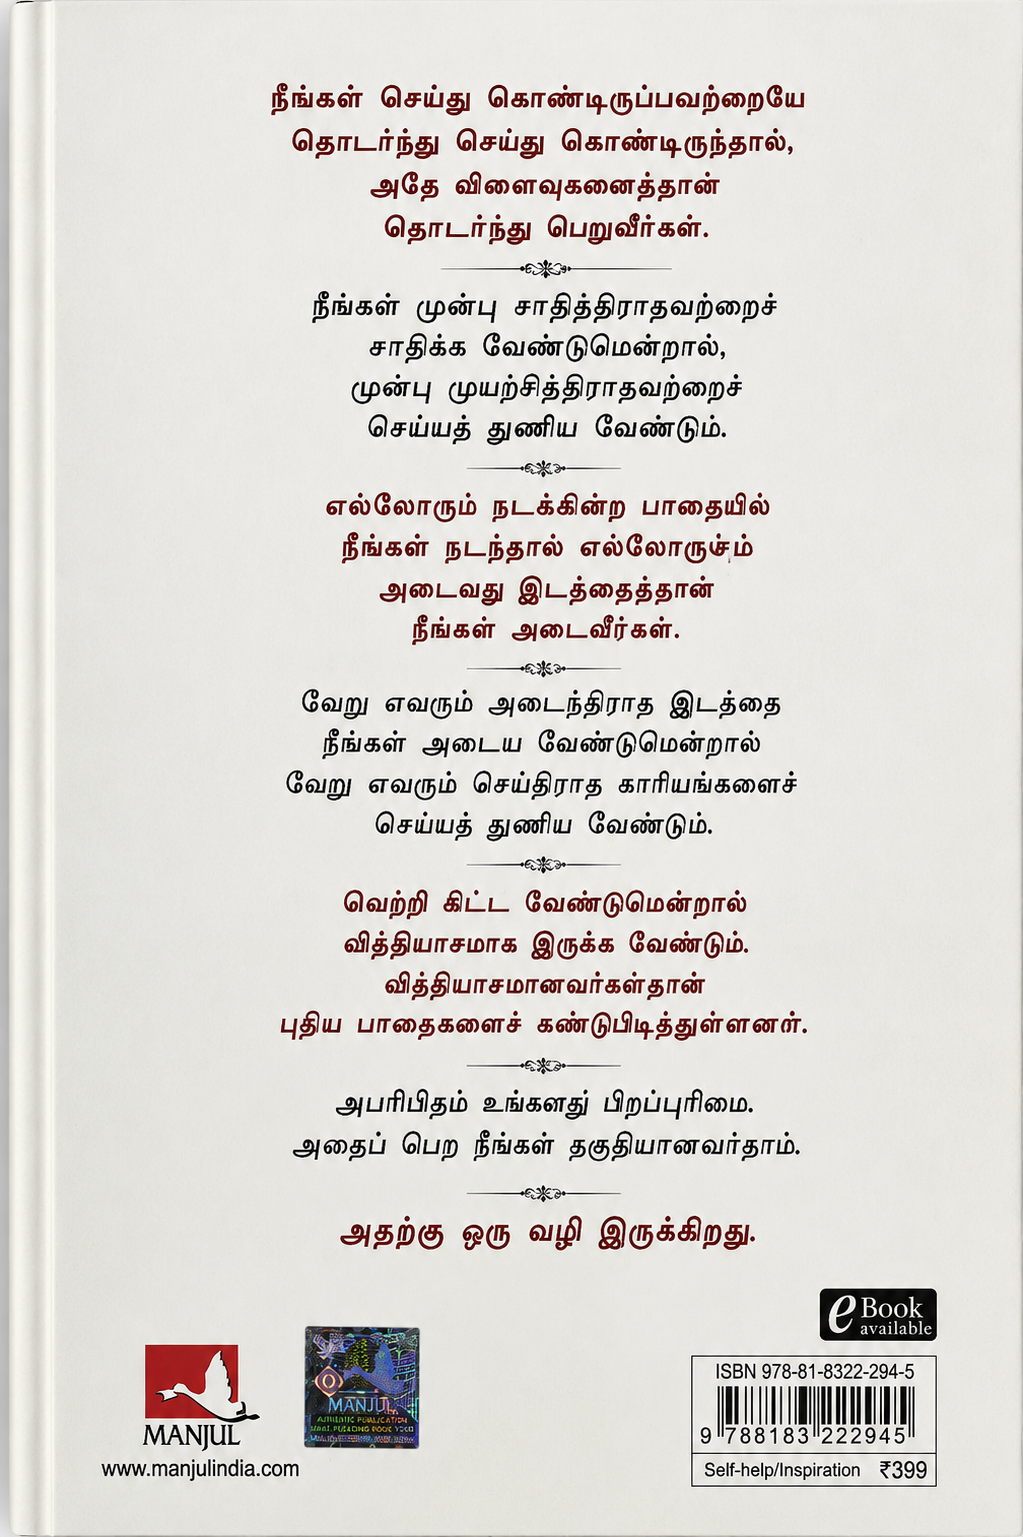 நீங்கள் செய்து கொண்டிருப்பவற்றையே
தொடர்ந்து செய்து கொண்டிருந்தால்,
அதே விளைவுகனைத்தான்
தொடர்ந்து பெறுவீர்கள்.
நீங்கள் முன்பு சாதித்திராதவற்றைச்
சாதிக்க வேண்டுமென்றால்,
முன்பு முயற்சித்திராதவற்றைச்
செய்யத் துணிய வேண்டும்.
எல்லோரும் நடக்கின்ற பாதையில்
நீங்கள் நடந்தால்
அடைவது இடத்தைத்தான்
நீங்கள் அடைவீர்கள்.
வேறு எவரும் அடைந்திராத இடத்தை
நீங்கள் அடைய வேண்டுமென்றால்
வேறு எவரும் செய்திராத காரியங்களைச்
செய்யத் துணிய வேண்டும்.
வெற்றி கிட்ட வேண்டுமென்றால்
வித்தியாசமாக இருக்க வேண்டும்.
வித்தியாசமானவர்கள்தான்
புதிய பாதைகளைச் கண்டுபிடித்துள்ளனர்.
அபரிபிதம் உங்களது பிறப்புரிமை.
அதைப் பெற நீங்கள் தகுதியானவர்தாம்.
அதற்கு ஒரு வழி இருக்கிறது.
eBook
available
MANJUL
www.manjulindia.com
MANJUL
ISBN 978-81-8322-294-5
9 788183 222945
Self-help/Inspiration ₹399